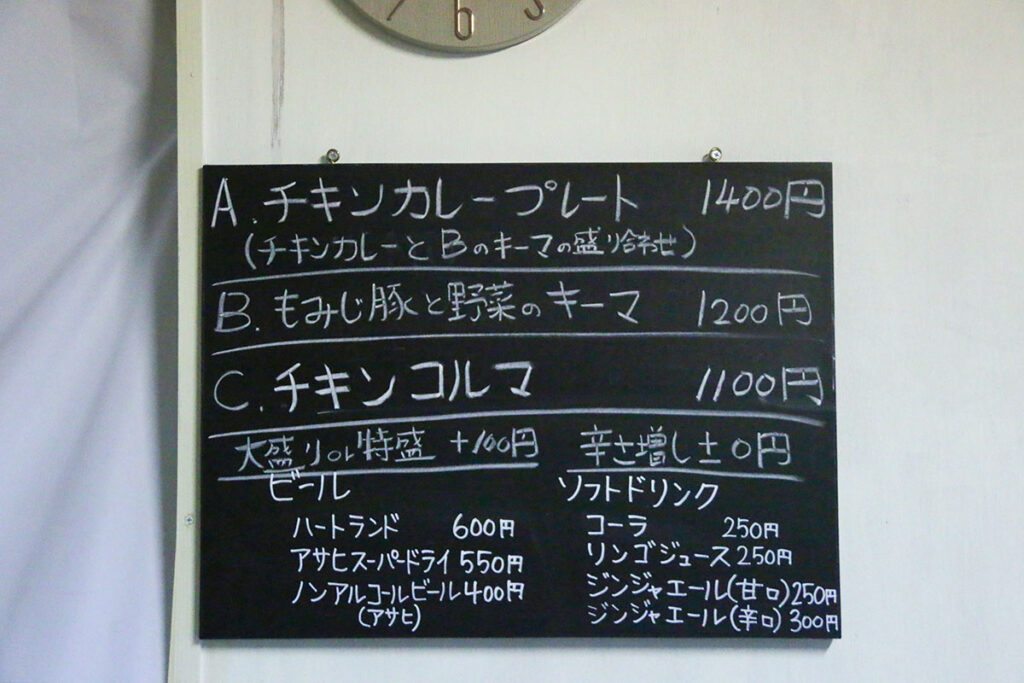 6
A. チキンカレープレート 1400円
(チキンカレーとBのキーマの盛り合わせ)
B. もみじ豚と野菜のキーマ 1200円
C. チキンコルマ 1100円
大盛りor特盛 +100円 辛さ増し±0円
ビール
ハートランド 600円
アサヒスーパードライ 550円
ノンアルコールビール 400円
(アサヒ)
ソフトドリンク
コーラ 250円
リンゴジュース 250円
ジンジャエール(甘口) 250円
ジンジャエール(辛口) 300円